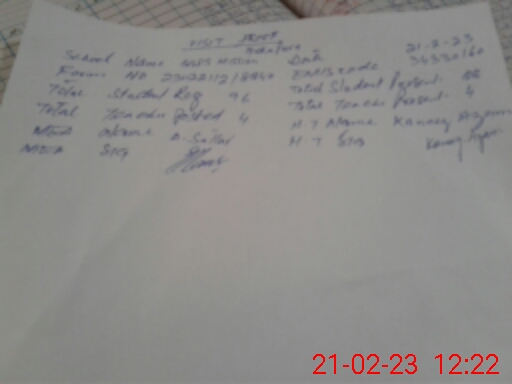 VISIT
School Name Mission Date 21-2-23
Forum No EMIS code 34330160
Total Student Reg 96 Total Student Present
Total Teacher Posted 4 Total Teacher Present 4
MEA Name A. Sattar H.T Name Kaneez
MEA SIG H.T SIG Kaneez
21-02-23 12:22